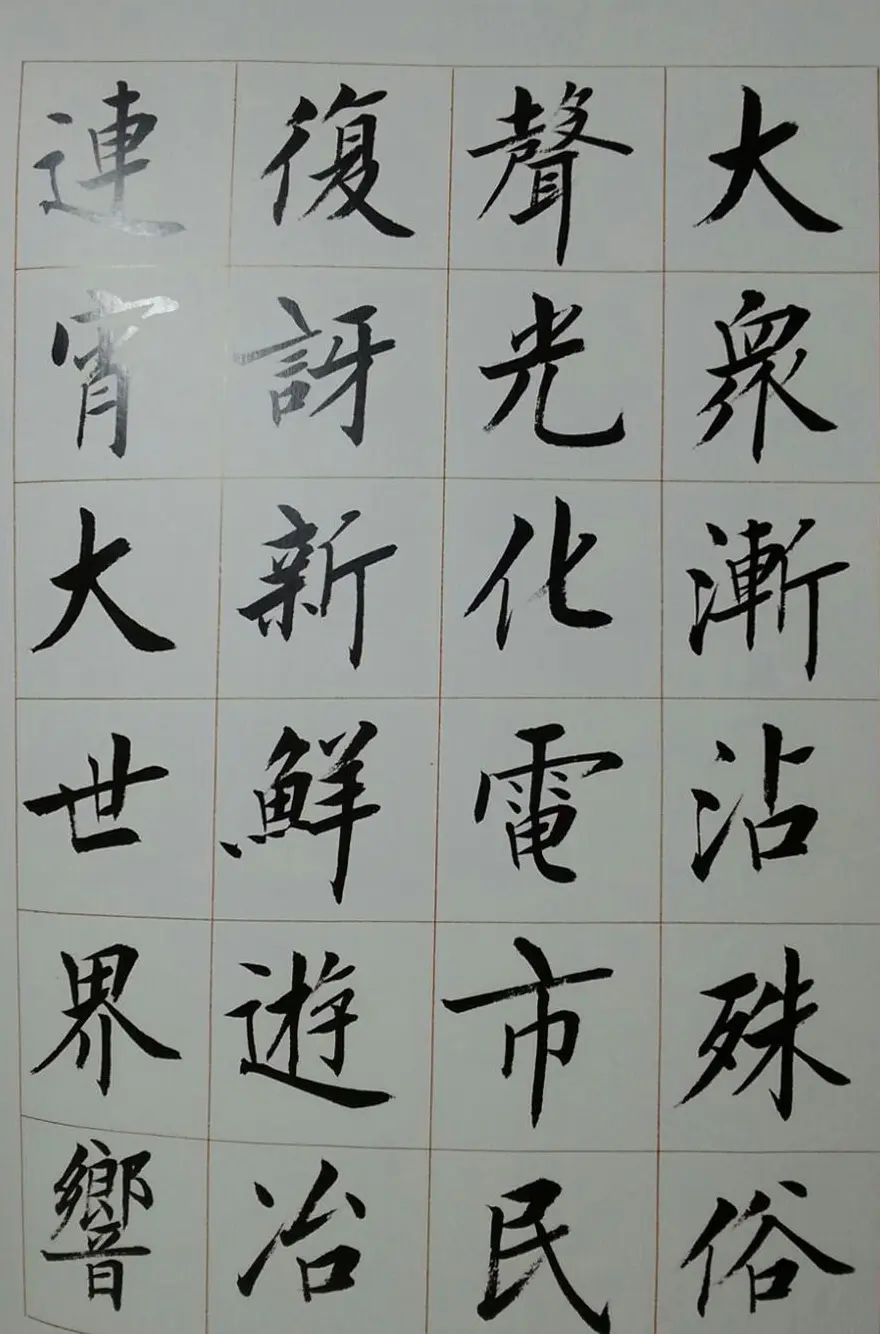 大衆漸沾殊俗
聲光化電市民
復訝新鮮遊冶
連宵大世界響